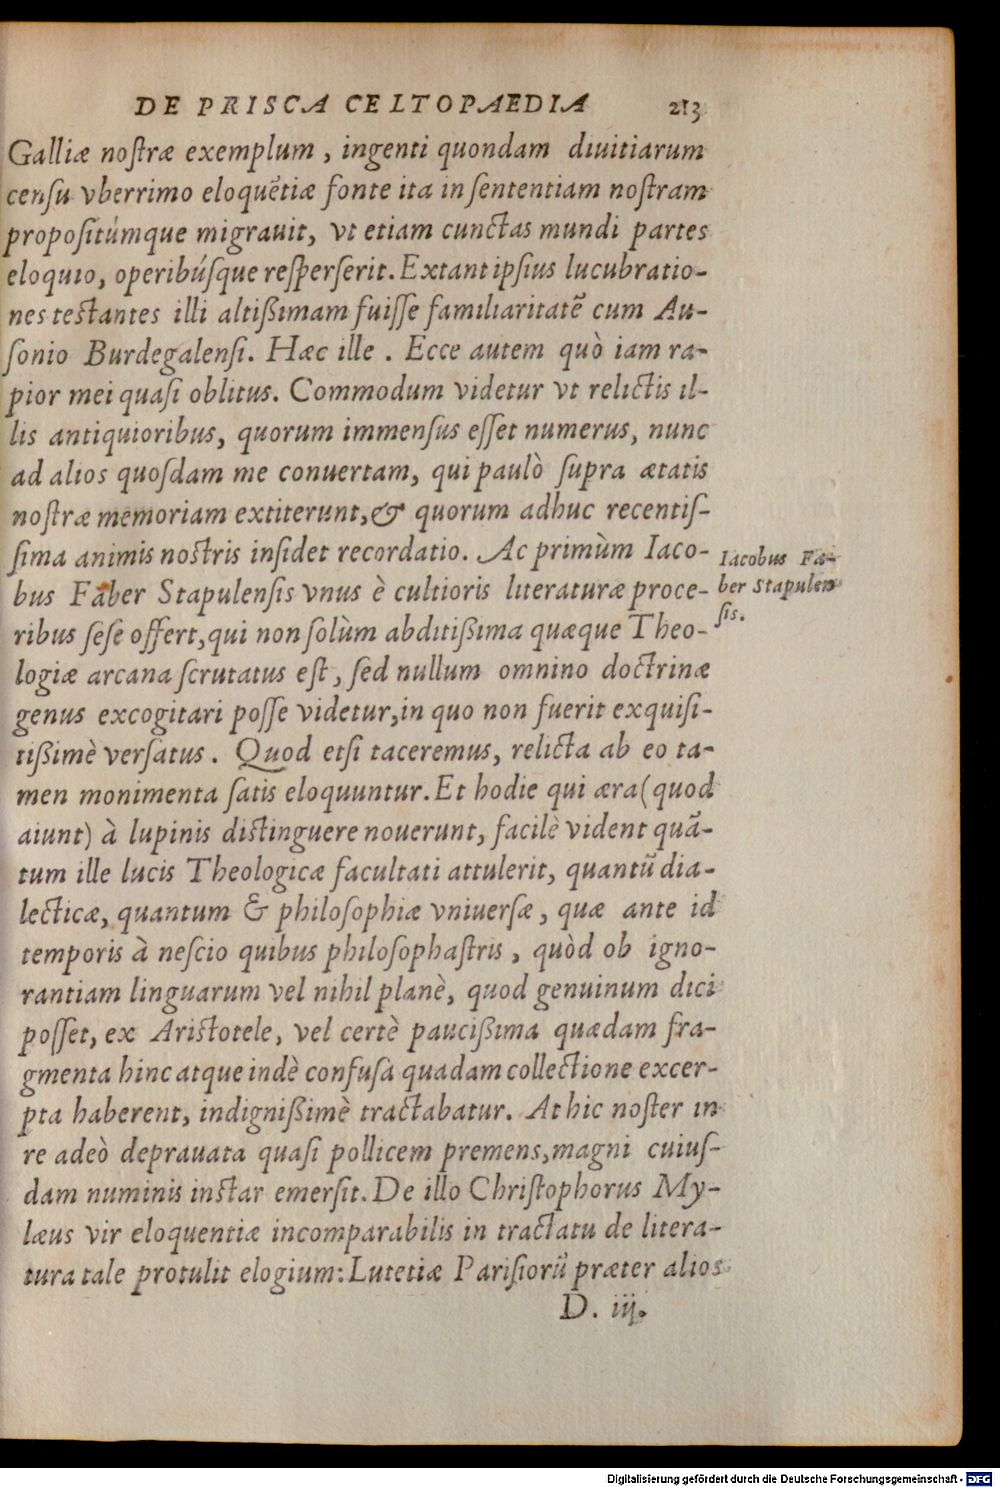 DE PRISCA CELTOPAEDIA 213
Galliæ noſtræ exemplum, ingenti quondam diuitiarum
cenſu vberrimo eloquẽtiæ fonte ita in ſententiam noſtram
propoſitúmque migrauit, vt etiam cunctas mundi partes
eloquio, operibúſque reſperſerit. Extant ipſius lucubratio-
nes testantes illi altißimam fuiſſe familiaritatẽ cum Au-
ſonio Burdegalenſi. Hæc ille. Ecce autem quò iam ra-
pior mei quaſi oblitus. Commodum videtur vt relictis il-
lis antiquioribus, quorum immenſus eſſet numerus, nunc
ad alios quoſdam me conuertam, qui paulò ſupra ætatis
noſtræ memoriam extiterunt, & quorum adhuc recentiſ-
ſima animis nostris inſidet recordatio. Ac primùm Iaco-
bus Faber Stapulenſis vnus è cultioris literaturæ proce-
ribus ſeſe offert, qui non ſolùm abditißima quæque Theo-
logiæ arcana ſcrutatus eſt, ſed nullum omnino doctrinæ
genus excogitari poſſe videtur, in quo non fuerit exquiſi-
tißimè verſatus. Quod etſi taceremus, relicta ab eo ta-
men monimenta ſatis eloquuntur. Et hodie qui æra (quod
aiunt) à lupinis distinguere nouerunt, facilè vident quã-
tum ille lucis Theologicæ facultati attulerit, quantũ dia-
lecticæ, quantum & philoſophiæ vniuerſæ, quæ ante id
temporis à neſcio quibus philoſophaſtris, quòd ob igno-
rantiam linguarum vel nihil planè, quod genuinum dici
poſſet, ex Ariſtotele, vel certè paucißima quædam fra-
gmenta hinc atque indè confuſa quadam collectione excer-
pta haberent, indignißimè tractabatur. At hic noſter in
re adeò deprauata quaſi pollicem premens, magni cuiuſ-
dam numinis instar emerſit. De illo Chriſtophorus My-
læus vir eloquentiæ incomparabilis in tractatu de litera-
tura tale protulit elogium: Lutetiæ Pariſiorũ præter alios
D. iij.
Iacobus Fa-
ber Stapulen
ſis.
Digitalisierung gefördert durch die Deutsche Forschungsgemeinschaft - DFG